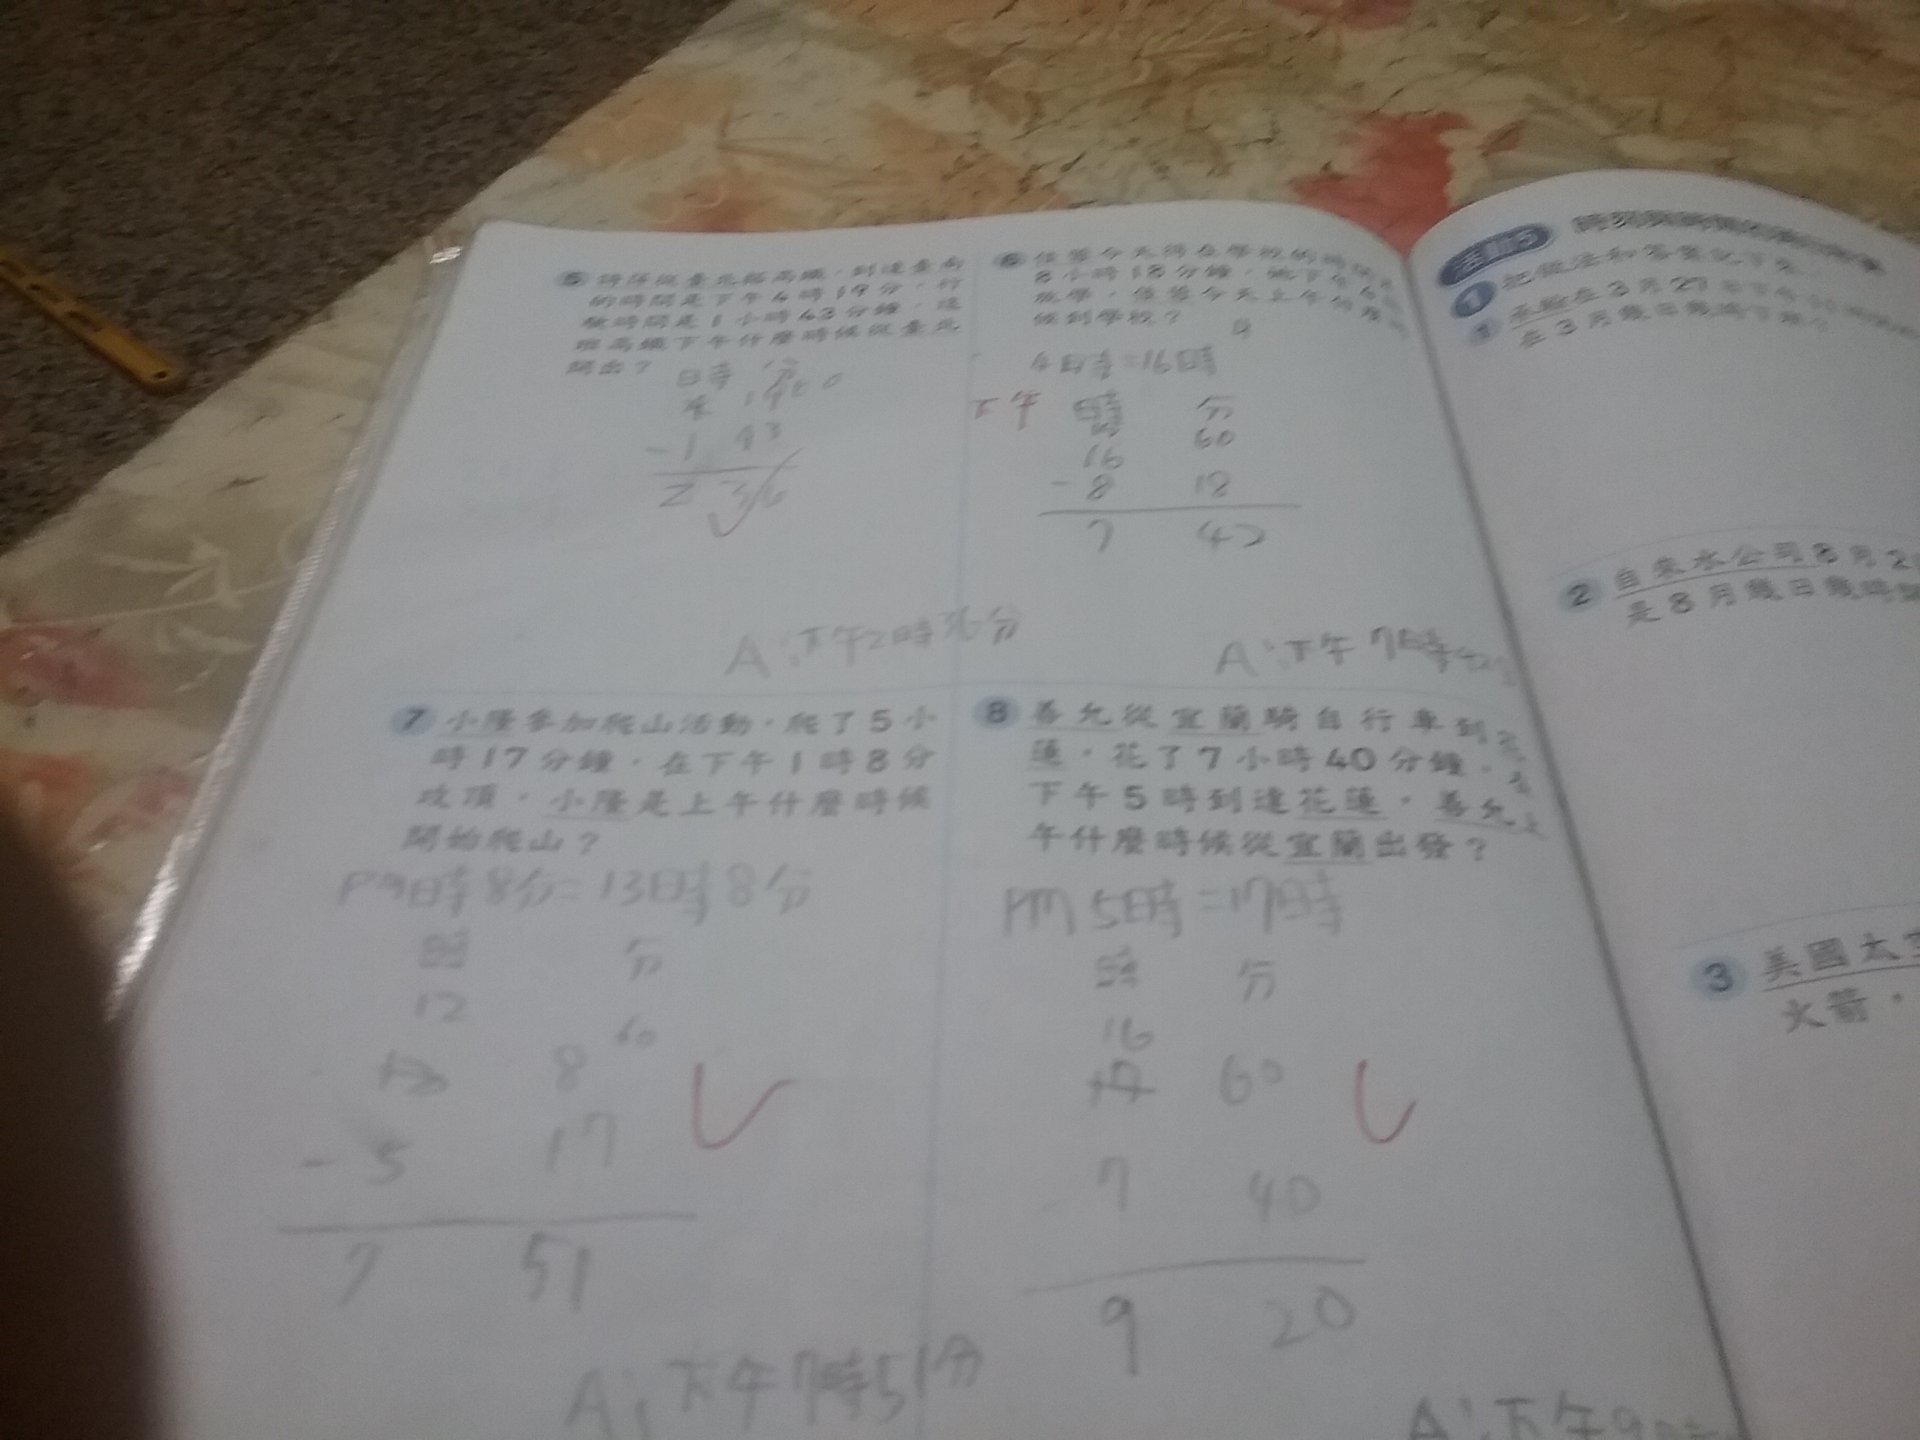 5 從臺北搭高鐵，到達臺南
的時間是下午4時19分，行
駛時間是1小時43分鐘，這
班高鐵下午什麼時候從臺北
開出？
時 分
4 19 60
-1 43
2 36
A：下午2時36分
6 今天待在學校的時間
8小時18分鐘，他下午4
放學，今天上午
候到學校？
4時=16時
下午 時 分
60
16
-8 18
7 42
A：下午7時42
7 小隆參加爬山活動，爬了5小
時17分鐘，在下午1時8分
攻頂，小隆是上午什麼時候
開始爬山？
PM1時8分=13時8分
時 分
12 60
13 8
-5 17
7 51
A：下午7時51分
8 善允從宜蘭騎自行車到花
蓮，花了7小時40分鐘，
下午5時到達花蓮，善允上
午什麼時候從宜蘭出發？
PM 5時=17時
時 分
16
17 60
7 40
9 20
A：下午9時
活動5
1 把做法和答案記下來
1 在3月27日下午
在3月幾日幾時
2 自來水公司8月2
是8月幾日幾時
3 美國太空
火箭，